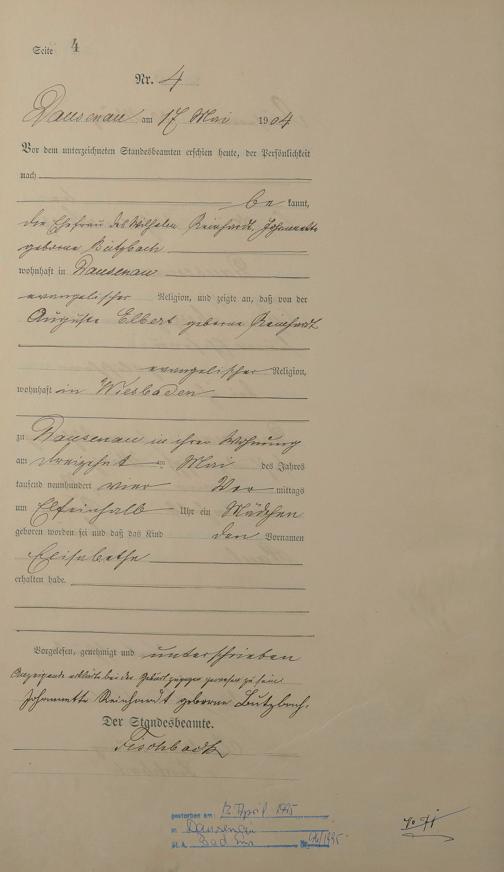 Seite 4
Nr. 4
Dausenau am 17 Mai 1904
Vor dem unterzeichneten Standesbeamten erschien heute, der Persönlichkeit
nach
be kannt,
die Ehefrau des Wilhelm Reinhardt, Johannette
geborne Bützbach
wohnhaft in Dausenau
evangelischer Religion, und zeigte an, daß von der
Auguste Elbert geborne Reinhardt
evangelischer Religion,
wohnhaft in Wiesbaden
zu Dausenau in ihrer Wohnung
am dreizehnt en Mai des Jahres
tausend neunhundert vier Vor mittags
um Elfeinhalb Uhr ein Mädchen
geboren worden sei und daß das Kind den Vornamen
Elisabethe
erhalten habe.
Vorgelesen, genehmigt und unterschrieben
Anzeigende erklärte bei der Geburt zugegen gewesen zu sein
Johannette Reinhardt geborne Butzbach.
Der Standesbeamte.
Fischbach
gestorben am: 13. April 1995
in Dausenau
St. A. Bad Ems Nr. /1995